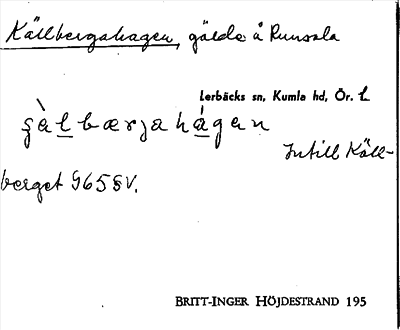 Källbergahagen, gärde å Runsala
Lerbäcks sn, Kumla hd, Ör. L
Intill Käll-
berget 965 SV.
BRITT-INGER HÖJDESTRAND 195